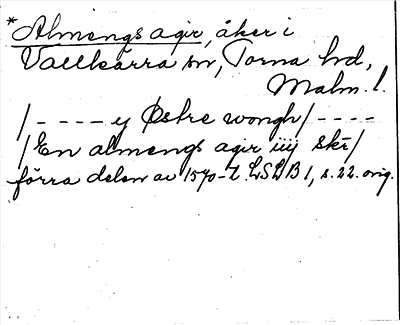 *Almengs agir, åker i
Vallkärra sn, Torna hd,
Malm. l.
/ - - - - y Østre wongh/ - - - -
/En almengs agir iiij skr/
förra delen av 1570-t. LSLB 1, s. 22. orig.